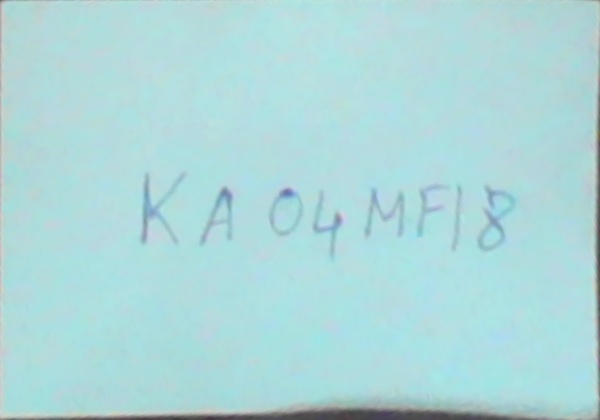 KA 04 MF18